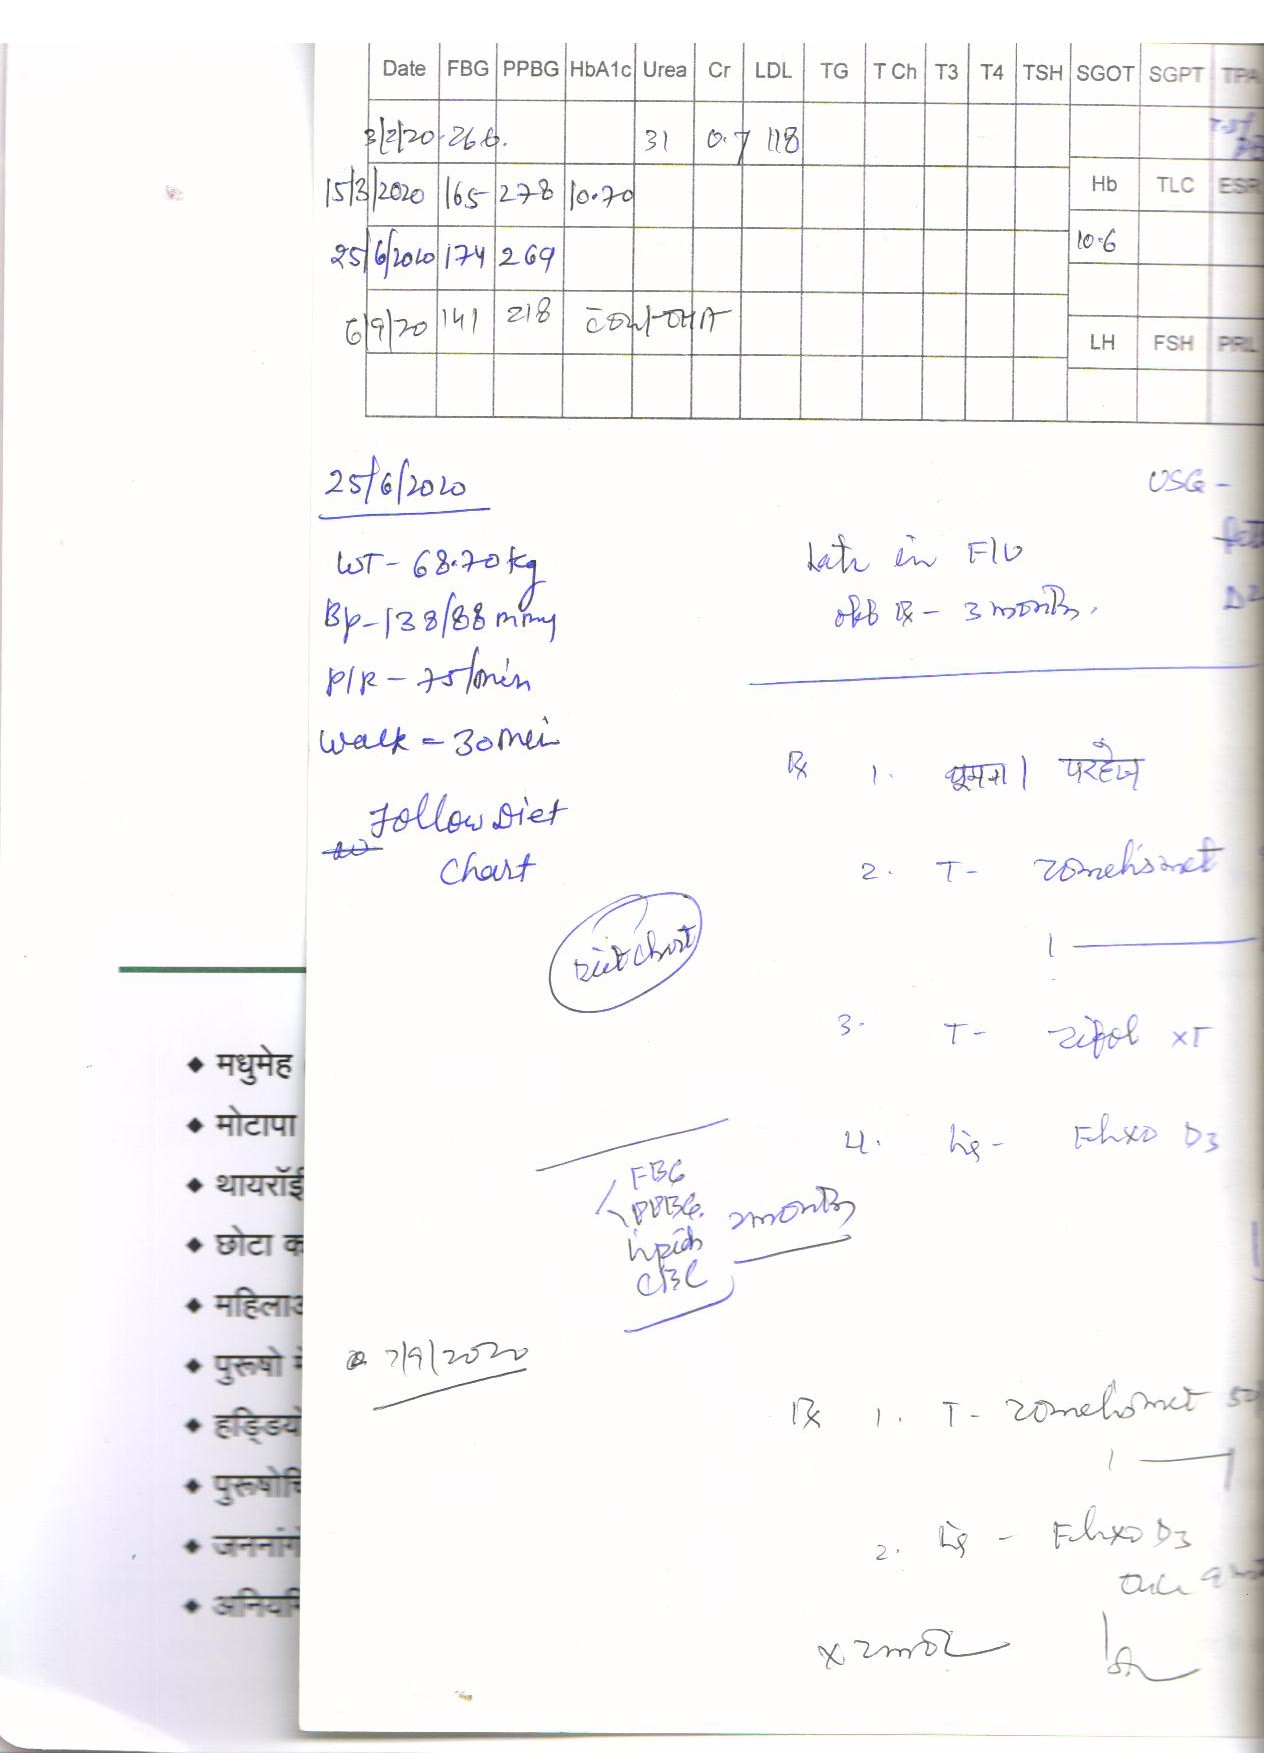 Date FBG PPBG HbA1c Urea Cr LDL TG T Ch T3 T4 TSH SGOT SGPT TPA
3/2/20 266. 31 0.7 118
15/3/2020 165 278 10.70
Hb TLC ESR
25/6/2020 174 269
10.6
6/9/20 141 218 OHA
LH FSH PRL
25/6/2020
USG -
WT - 68.70 kg
Late in F/U
Bp - 138/88 mmHg
off Rx - 3 months.
P/R - 75/min
Walk = 30 min
Rx 1. घूमना । परहेज
Follow Diet
Chart
2. T- zomelismet
1
Diet chart
3. T- zifol XT
4. Elixo D3
FBG
PPBG.
lipids
CBC
2 months
7/9/2020
Rx 1. T- zomelismet
1
2. Elixo D3
x 2 mo
मधुमेह
मोटापा
थायरॉई
छोटा क
महिलाअ
पुरूषो
हड्डियो
पुरूषोचि
जननांगो
अनियमि